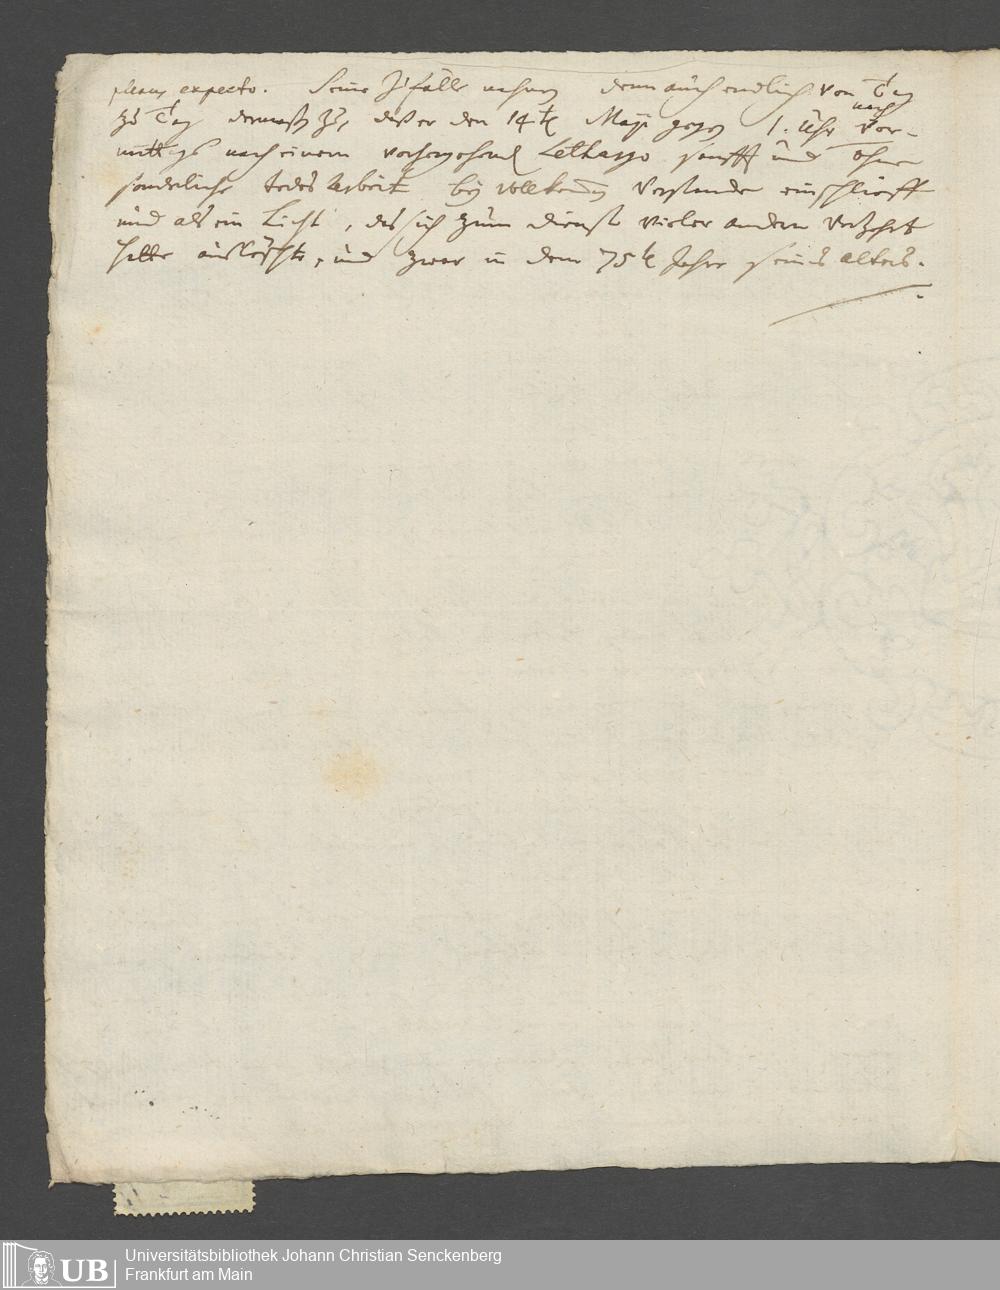 plenus expecto. Seine Zufälle nahmen dann auch endlich von Tag
zu Tag dermaßen zu, daß er den 14t Maji gegen 1. Uhr nach Vor-
mittags nach einem vorhergehend Lethargo sanfft und ohne
sonderliche todes Arbeit bey vollkommen Verstande einschlieff
und als ein Licht, das sich zum dienst vieler andern verzehrt
hatte auslöschte, und zwar in dem 75t Jahre seines alters.
UB
Universitätsbibliothek Johann Christian Senckenberg
Frankfurt am Main